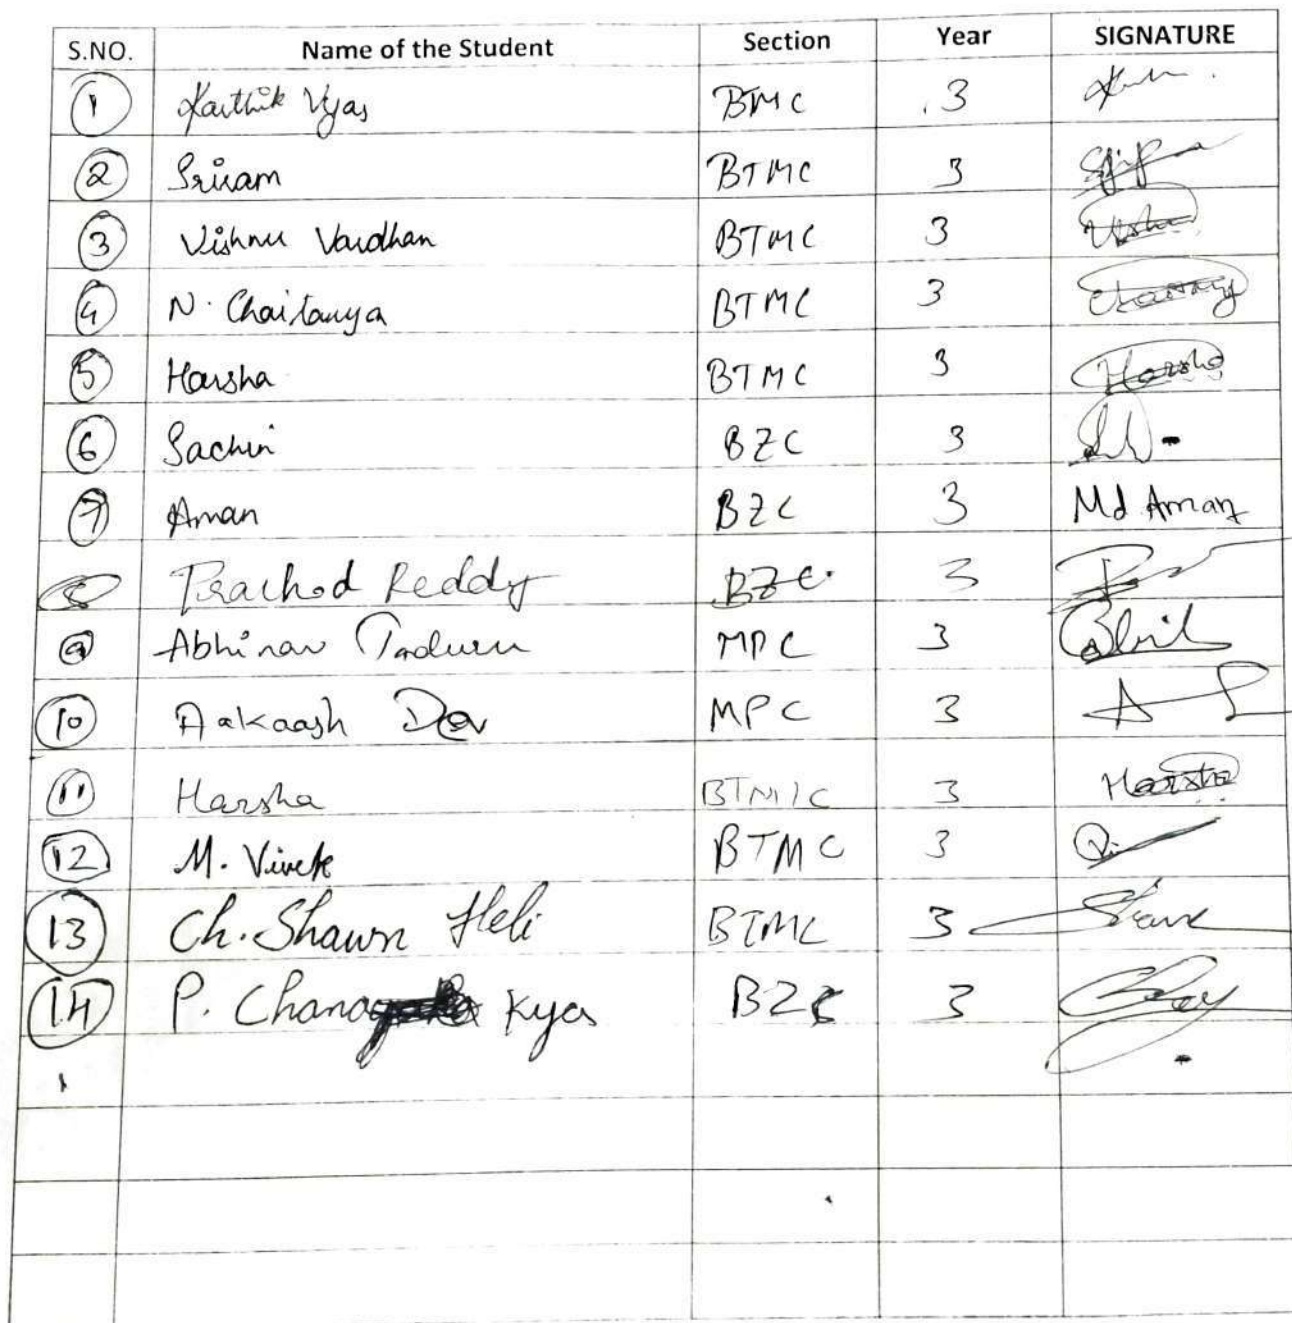 S.NO. Name of the Student Section Year SIGNATURE
1 Karthik Vyas BTMC 3
2 Sriram BTMC 3
3 Vishnu Vardhan BTMC 3
4 N. Chaitanya BTMC 3
5 Harsha BTMC 3 Harsha
6 Sachin BZC 3
7 Aman BZC 3 Md Aman
8 Reddy BZC. 3
9 Abhinav MPC 3
10 Aakaash Dev MPC 3
11 Harsha BTMC 3 Harsha
12 M. Vivek BTMC 3
13 Ch. Shawn Heli BTMC 3
14 P. Chana Kyas BZC 3